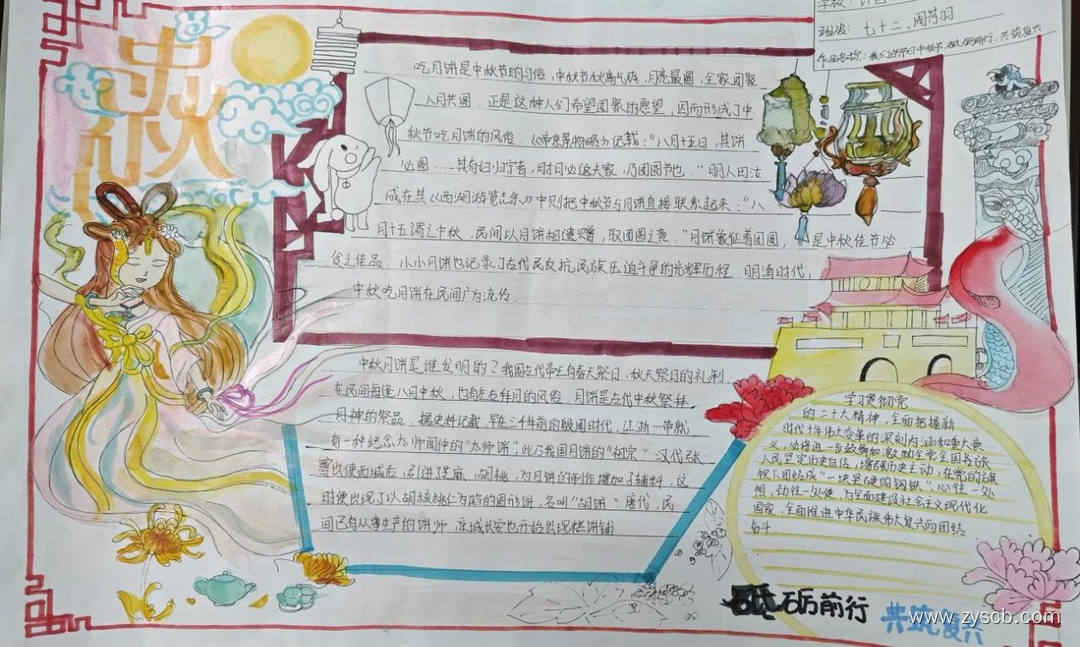 中秋
学校：
班级：七十二、周芎羽
作品名称：我们的节日中秋节，砥砺前行，共筑复兴
吃月饼是中秋节的习俗，中秋节秋高气爽，月亮最圆，全家团聚
人月共圆，正是这种人们希望团聚的愿望，因而形成了中
秋节吃月饼的风俗，《帝京景物略》记载：“八月十五日，其饼
必圆……其有妇归宁者，是日必返夫家，乃团圆节也．”明人田汝
成在其《西湖游览志余》中则把中秋节与月饼直接联系起来：“八
月十五谓之中秋，民间以月饼相遗赠，取团圆之意．”月饼象征着团圆，是中秋佳节必
食之佳品．小小月饼也记录了古代民反抗民族压迫斗争的光辉历程．明清时代，
中秋吃月饼在民间广为流传．
中秋月饼是谁发明的？我国古代帝王有春天祭日、秋天祭月的礼制
在民间每逢八月中秋，也有左右拜月的风俗．月饼是古代中秋祭拜
月神的祭品．据史料记载，早在三千年前的殷周时代，江浙一带就
有一种纪念太师闻仲的“太师饼”，此乃我国月饼的“祖宗”．汉代张
骞出使西域后，引进芝麻、胡桃，为月饼的制作增加了辅料，这
时便出现了以胡桃仁为馅的圆形饼，名叫“胡饼”．唐代，民
间已有从事生产的饼师，京城长安也开始出现糕饼铺．
学习贯彻党
的二十大精神，全面把握新
时代十年伟大变革的深刻内涵和重大意
义，必将进一步鼓舞和激励全党全国各族
人民坚定历史自信，增强历史主动，在党的旗
帜下团结成“一块坚硬的钢铁”，心往一处
想，劲往一处使，为全面建设社会主义现代化
国家、全面推进中华民族伟大复兴而团结
奋斗．
砥砺前行 共筑复兴
www.zyscb.com